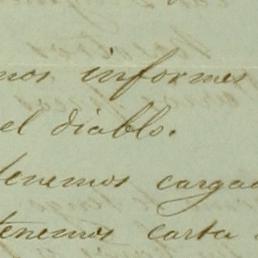 mos informes
el diablo.
tenemos cargad
tenemos carta